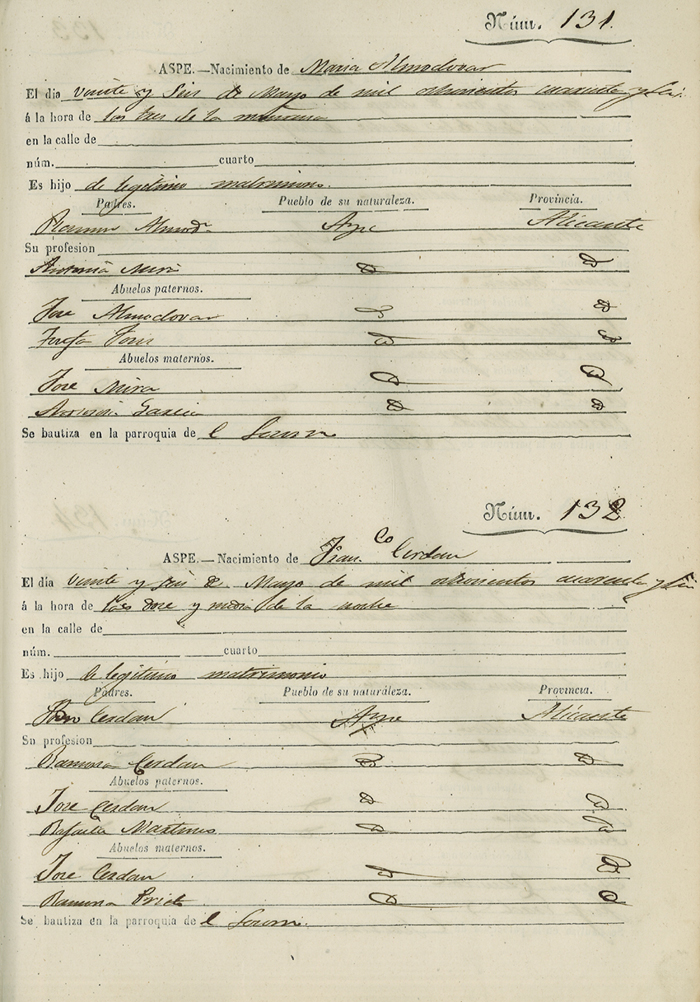 Núm. 131.
ASPE.—Nacimiento de Maria Almodovar
El dia veinte y seis de Mayo de mil ochocientos cuarenta y seis
á la hora de las tres de la mañana
en la calle de
núm. cuarto
Es hijo de legitimo matrimonio.
Padres. Pueblo de su naturaleza. Provincia.
Ramon Almodr Aspe Alicante
Su profesion
Antonia Mira
Abuelos paternos.
Jose Almodovar
Josefa
Abuelos maternos.
Jose Mira
Garcia
Se bautiza en la parroquia de el Socorro
Núm. 132
ASPE.—Nacimiento de Franco Cerdan
El dia veinte y seis de Mayo de mil ochocientos cuarenta y seis
á la hora de las doce y media de la noche
en la calle de
núm. cuarto
Es hijo de legitimo matrimonio
Padres. Pueblo de su naturaleza. Provincia.
Cerdan Aspe Alicante
Su profesion
Ramona Cerdan
Abuelos paternos.
Jose Cerdan
Rafaela Martinez
Abuelos maternos.
Jose Cerdan
Ramona Prieto
Se bautiza en la parroquia de el Socorro